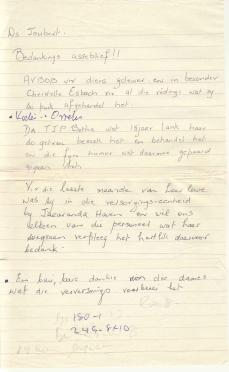 Ds Joubert.
Bedankings asseblief!!
AVBOB vir diens gelewer en in besonder
Christelle Esbach vir al die reëlings wat sy
so flink afgehandel het.
• Koekie - Orrelis
DR TJP Botha wat 18jaar lank haar
as getroue besoek het en behandel het
en die fyn humor wat daarmee gepaard
gegaan het.
Vir die laaste maande van haar lewe
was sy in die versorgings-eenheid
by Jacaranda Haven en wil ons
elkeen van die personeel wat haar
verpleeg het hartlik daarvoor
bedank.
• En baie, baie dankie aan die dames
wat die verversings voorberei het
180-1
248-8+10